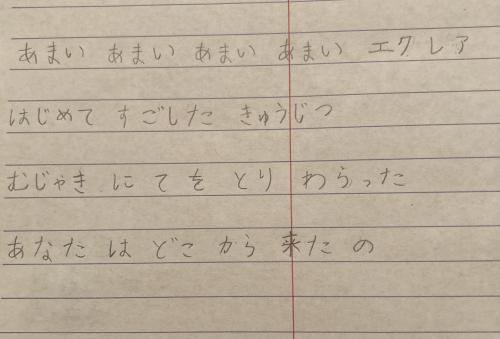 あまい あまい あまい あまい エクレア
はじめて すごした きゅうじつ
むじゃき に て を とり わらった
あなた は どこ から 来た の